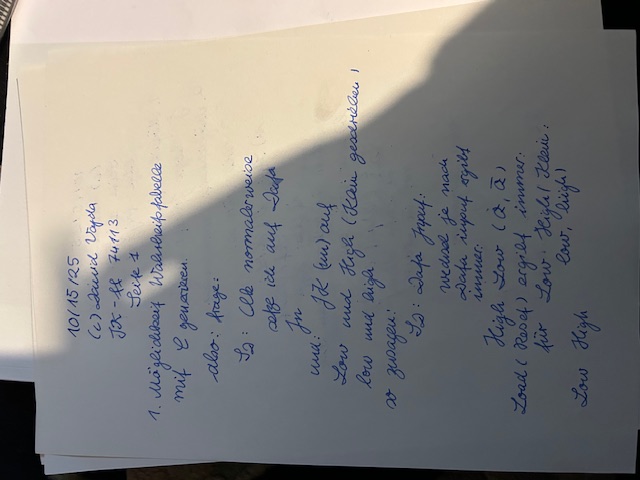 10/15/25
(c) David Vajda
JK-FF 74113
Seite 1
1. Möglichkeit Wahrheitstabelle
mit C generieren.
also: Frage:
SD: Wie normalerweise
setze ich auf Data
In
und: JK (un) auf
Low und High (klein geschrieben)
low und high
so zusagen:
SD: Data Input:
wechsel je nach
Data input ergibt
immer:
High Low (Q, Q̅)
Load (Reset) ergibt immer:
für Low: High (klein:
Low High low, high)